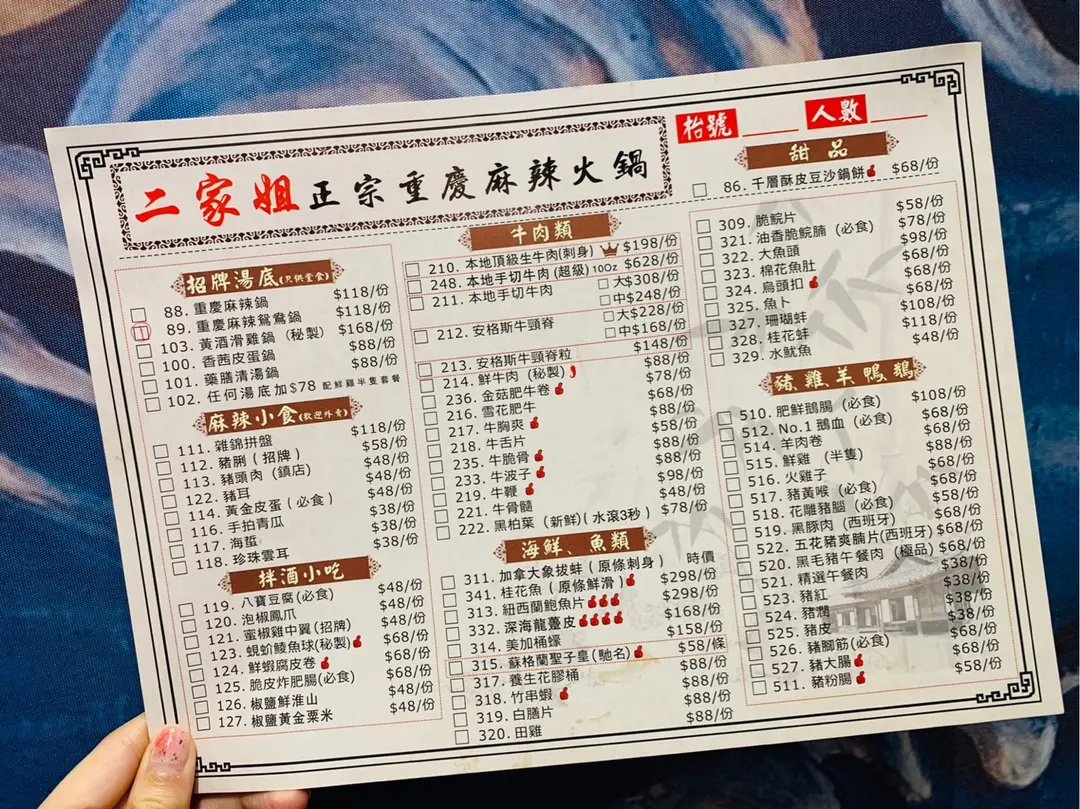 枱號
人數
二家姐正宗重慶麻辣火鍋
招牌湯底(只供堂食)
88. 重慶麻辣鍋 $118/份
89. 重慶麻辣鴛鴦鍋 $118/份
103. 黃酒滑雞鍋（秘製） $168/份
100. 香茜皮蛋鍋 $88/份
101. 藥膳清湯鍋 $88/份
102. 任何湯底加$78 配鮮雞半隻套餐
麻辣小食(歡迎外賣)
111. 雜錦拼盤 $118/份
112. 豬脷（招牌） $58/份
113. 豬頭肉（鎮店） $48/份
122. 豬耳 $48/份
114. 黃金皮蛋（必食） $48/份
116. 手拍青瓜 $38/份
117. 海蜇 $38/份
118. 珍珠雲耳 $38/份
拌酒小吃
119. 八寶豆腐(必食) $48/份
120. 泡椒鳳爪 $48/份
121. 蜜椒雞中翼(招牌) $48/份
123. 蜆蚧鯪魚球(秘製) $68/份
124. 鮮蝦腐皮卷 $68/份
125. 脆皮炸肥腸(必食) $68/份
126. 椒鹽鮮淮山 $48/份
127. 椒鹽黃金粟米 $48/份
牛肉類
210. 本地頂級生牛肉(刺身) $198/份
248. 本地手切牛肉 (超級) 10Oz $628/份
211. 本地手切牛肉 大$308/份
中$248/份
212. 安格斯牛頸脊 大$228/份
中$168/份
213. 安格斯牛頸脊粒 $148/份
214. 鮮牛肉 (秘製) $88/份
236. 金菇肥牛卷 $78/份
216. 雪花肥牛 $68/份
217. 牛胸爽 $88/份
218. 牛舌片 $58/份
235. 牛脆骨 $88/份
233. 牛波子 $88/份
219. 牛鞭 $98/份
221. 牛骨髓 $48/份
222. 黑柏葉（新鮮)(水滾3秒） $78/份
海鮮、魚類
311. 加拿大象拔蚌（原條刺身） 時價
341. 桂花魚（原條鮮滑） $298/份
313. 紐西蘭鮑魚片 $298/份
332. 深海龍躉皮 $168/份
314. 美加桶蠔 $158/份
315. 蘇格蘭聖子皇(馳名) $58/條
317. 養生花膠桶 $88/份
318. 竹串蝦 $88/份
319. 白膳片 $88/份
320. 田雞
甜品
86. 千層酥皮豆沙鍋餅 $68/份
309. 脆鯇片 $58/份
321. 油香脆鯇腩（必食） $78/份
322. 大魚頭 $98/份
323. 棉花魚肚 $68/份
324. 烏頭扣 $68/份
325. 魚卜 $68/份
327. 珊瑚蚌 $108/份
328. 桂花蚌
329. 水魷魚 $48/份
豬雞羊鴨鵝
510. 肥鮮鵝腸（必食） $108/份
512. No.1 鵝血（必食） $68/份
514. 羊肉卷
515. 鮮雞 （半隻）
516. 火雞子
517. 豬黃喉（必食）
518. 花雕豬腦（必食）
519. 黑豚肉（西班牙）
522. 五花豬爽腩片(西班牙) $68/份
520. 黑毛豬午餐肉（極品） $68/份
521. 精選午餐肉 $38/份
523. 豬紅 $38/份
524. 豬潤 $38/份
525. 豬皮 $38/份
526. 豬腳筋(必食) $68/份
527. 豬大腸 $68/份
511. 豬粉腸 $58/份